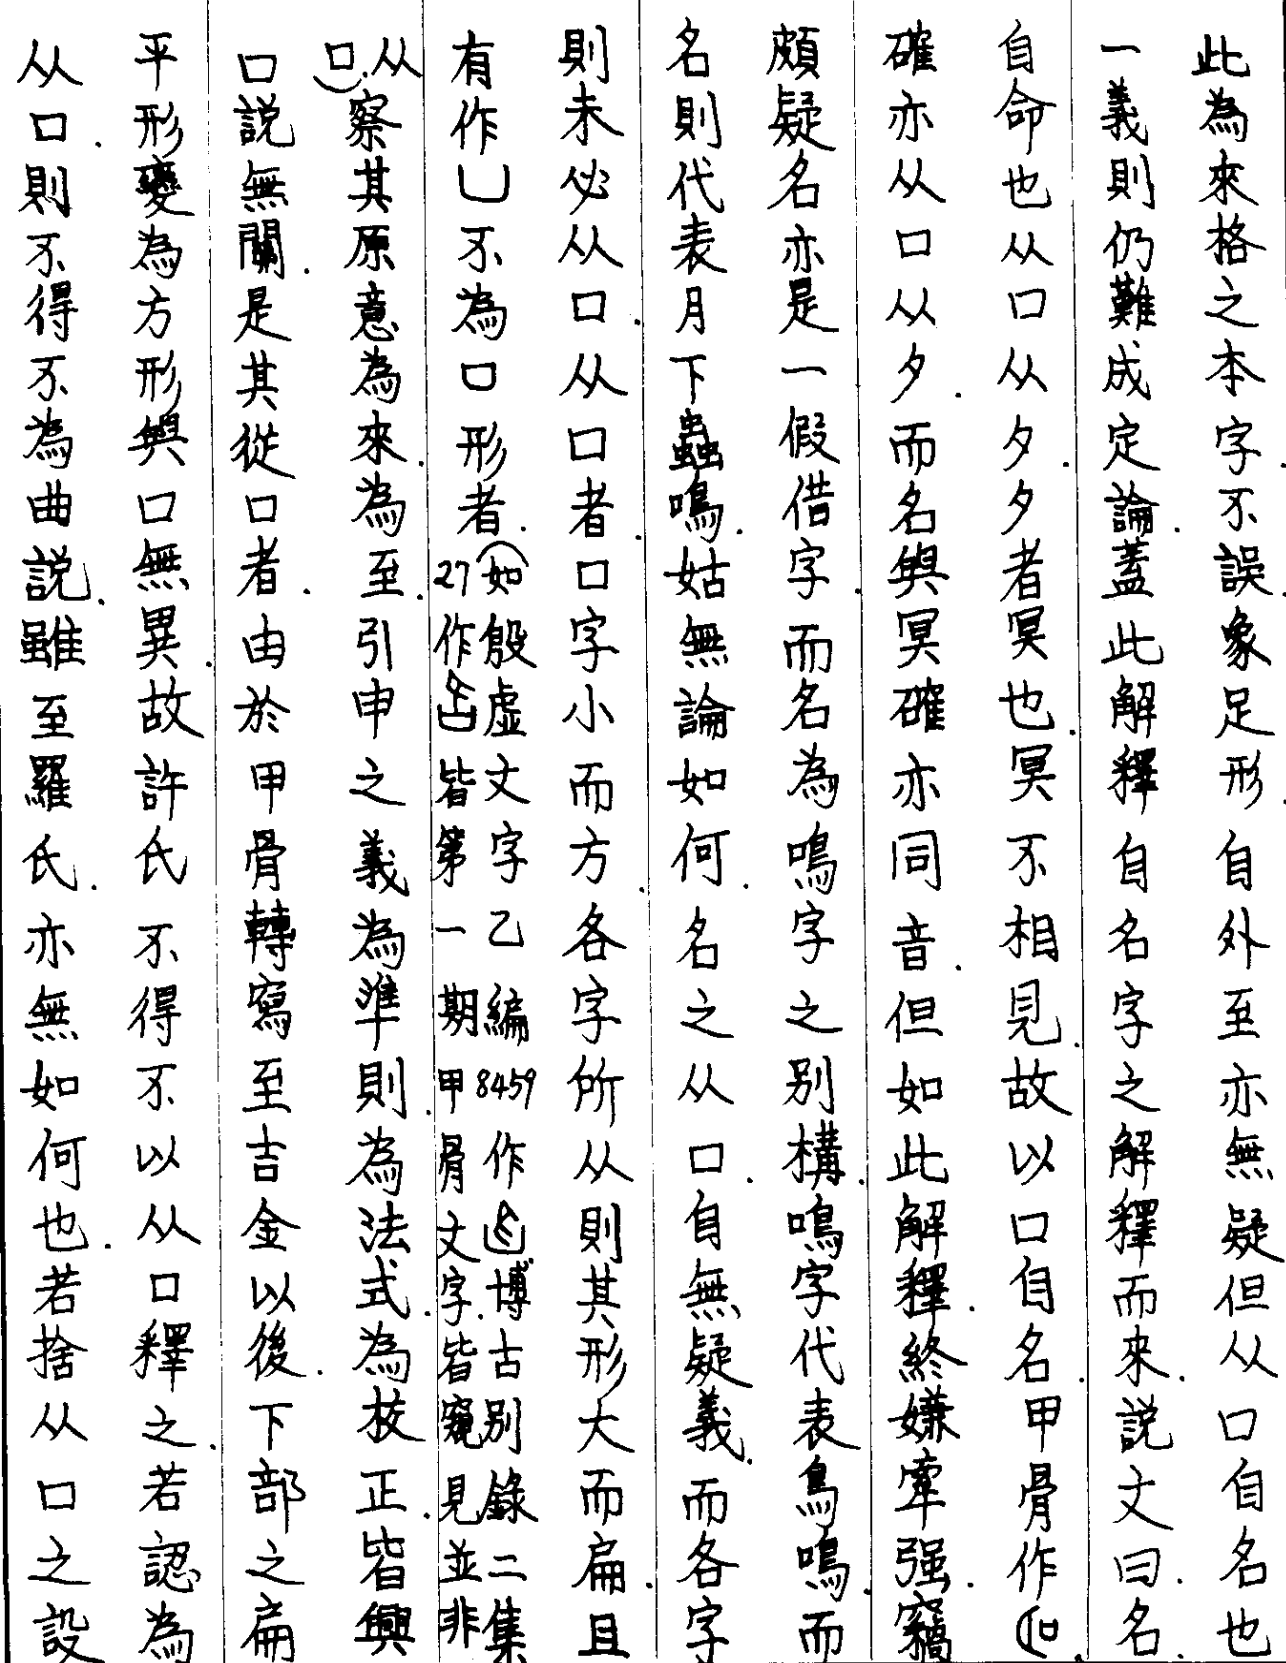 此為來格之本字.不誤.象足形.自外至亦無疑但从口自名也
一義則仍難成定論.蓋此解釋自名字之解釋而來.説文曰.名.
自命也从口从夕.夕者冥也.冥不相見.故以口自名.甲骨作
確亦从口从夕.而名與冥確亦同音.但如此解釋.終嫌牽强.竊
頗疑名亦是一假借字.而名為鳴字之别構.鳴字代表鳥鳴.而
名則代表月下蟲鳴.姑無論如何.名之从口.自無疑義.而各字
則未必从口.从口者.口字小而方.各字所从則其形大而扁.且
有作凵不為口形者.(如殷虚文字乙編8459作 博古别錄二集
27作 皆第一期甲骨文字.皆窺見並非
从口.)察其原意為來.為至.引申之義為準則.為法式.為校正.皆與
口説無關.是其從口者.由於甲骨轉寫至吉金以後.下部之扁
平形變為方形與口無異.故許氏不得不以从口釋之.若認為
从口.則不得不為曲説.雖至羅氏.亦無如何也.若捨从口之設